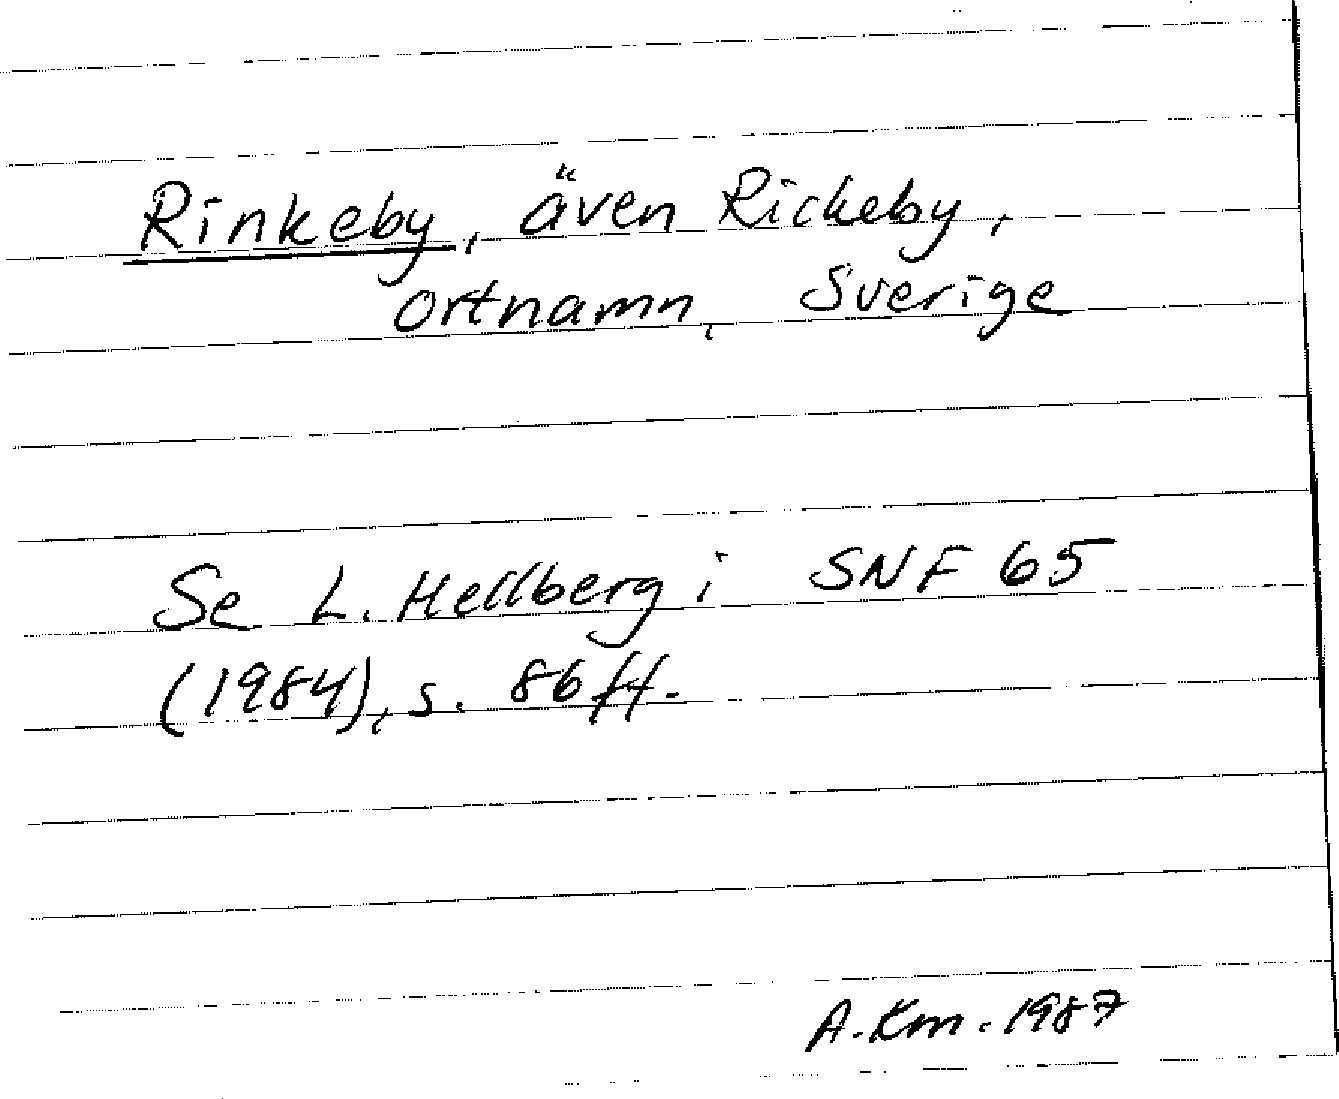 Rinkeby, även Rickeby,
ortnamn, Sverige
Se L. Hellberg i SNF 65
(1984), s. 86 ff.
A. Km. 1987